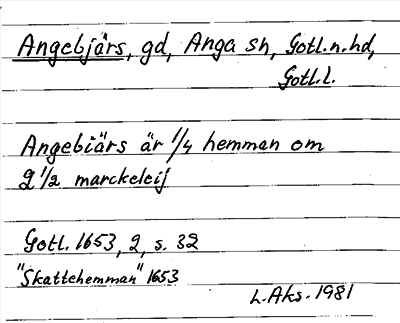 Angebjärs, gd, Anga sn, Gotl.n.hd,
Gotl.l.
Angebiärs är 1/4 hemman om
2 1/2 marckeleij
Gotl. 1653, 2, s. 32
"Skattehemman" 1653
L.Aks. 1981